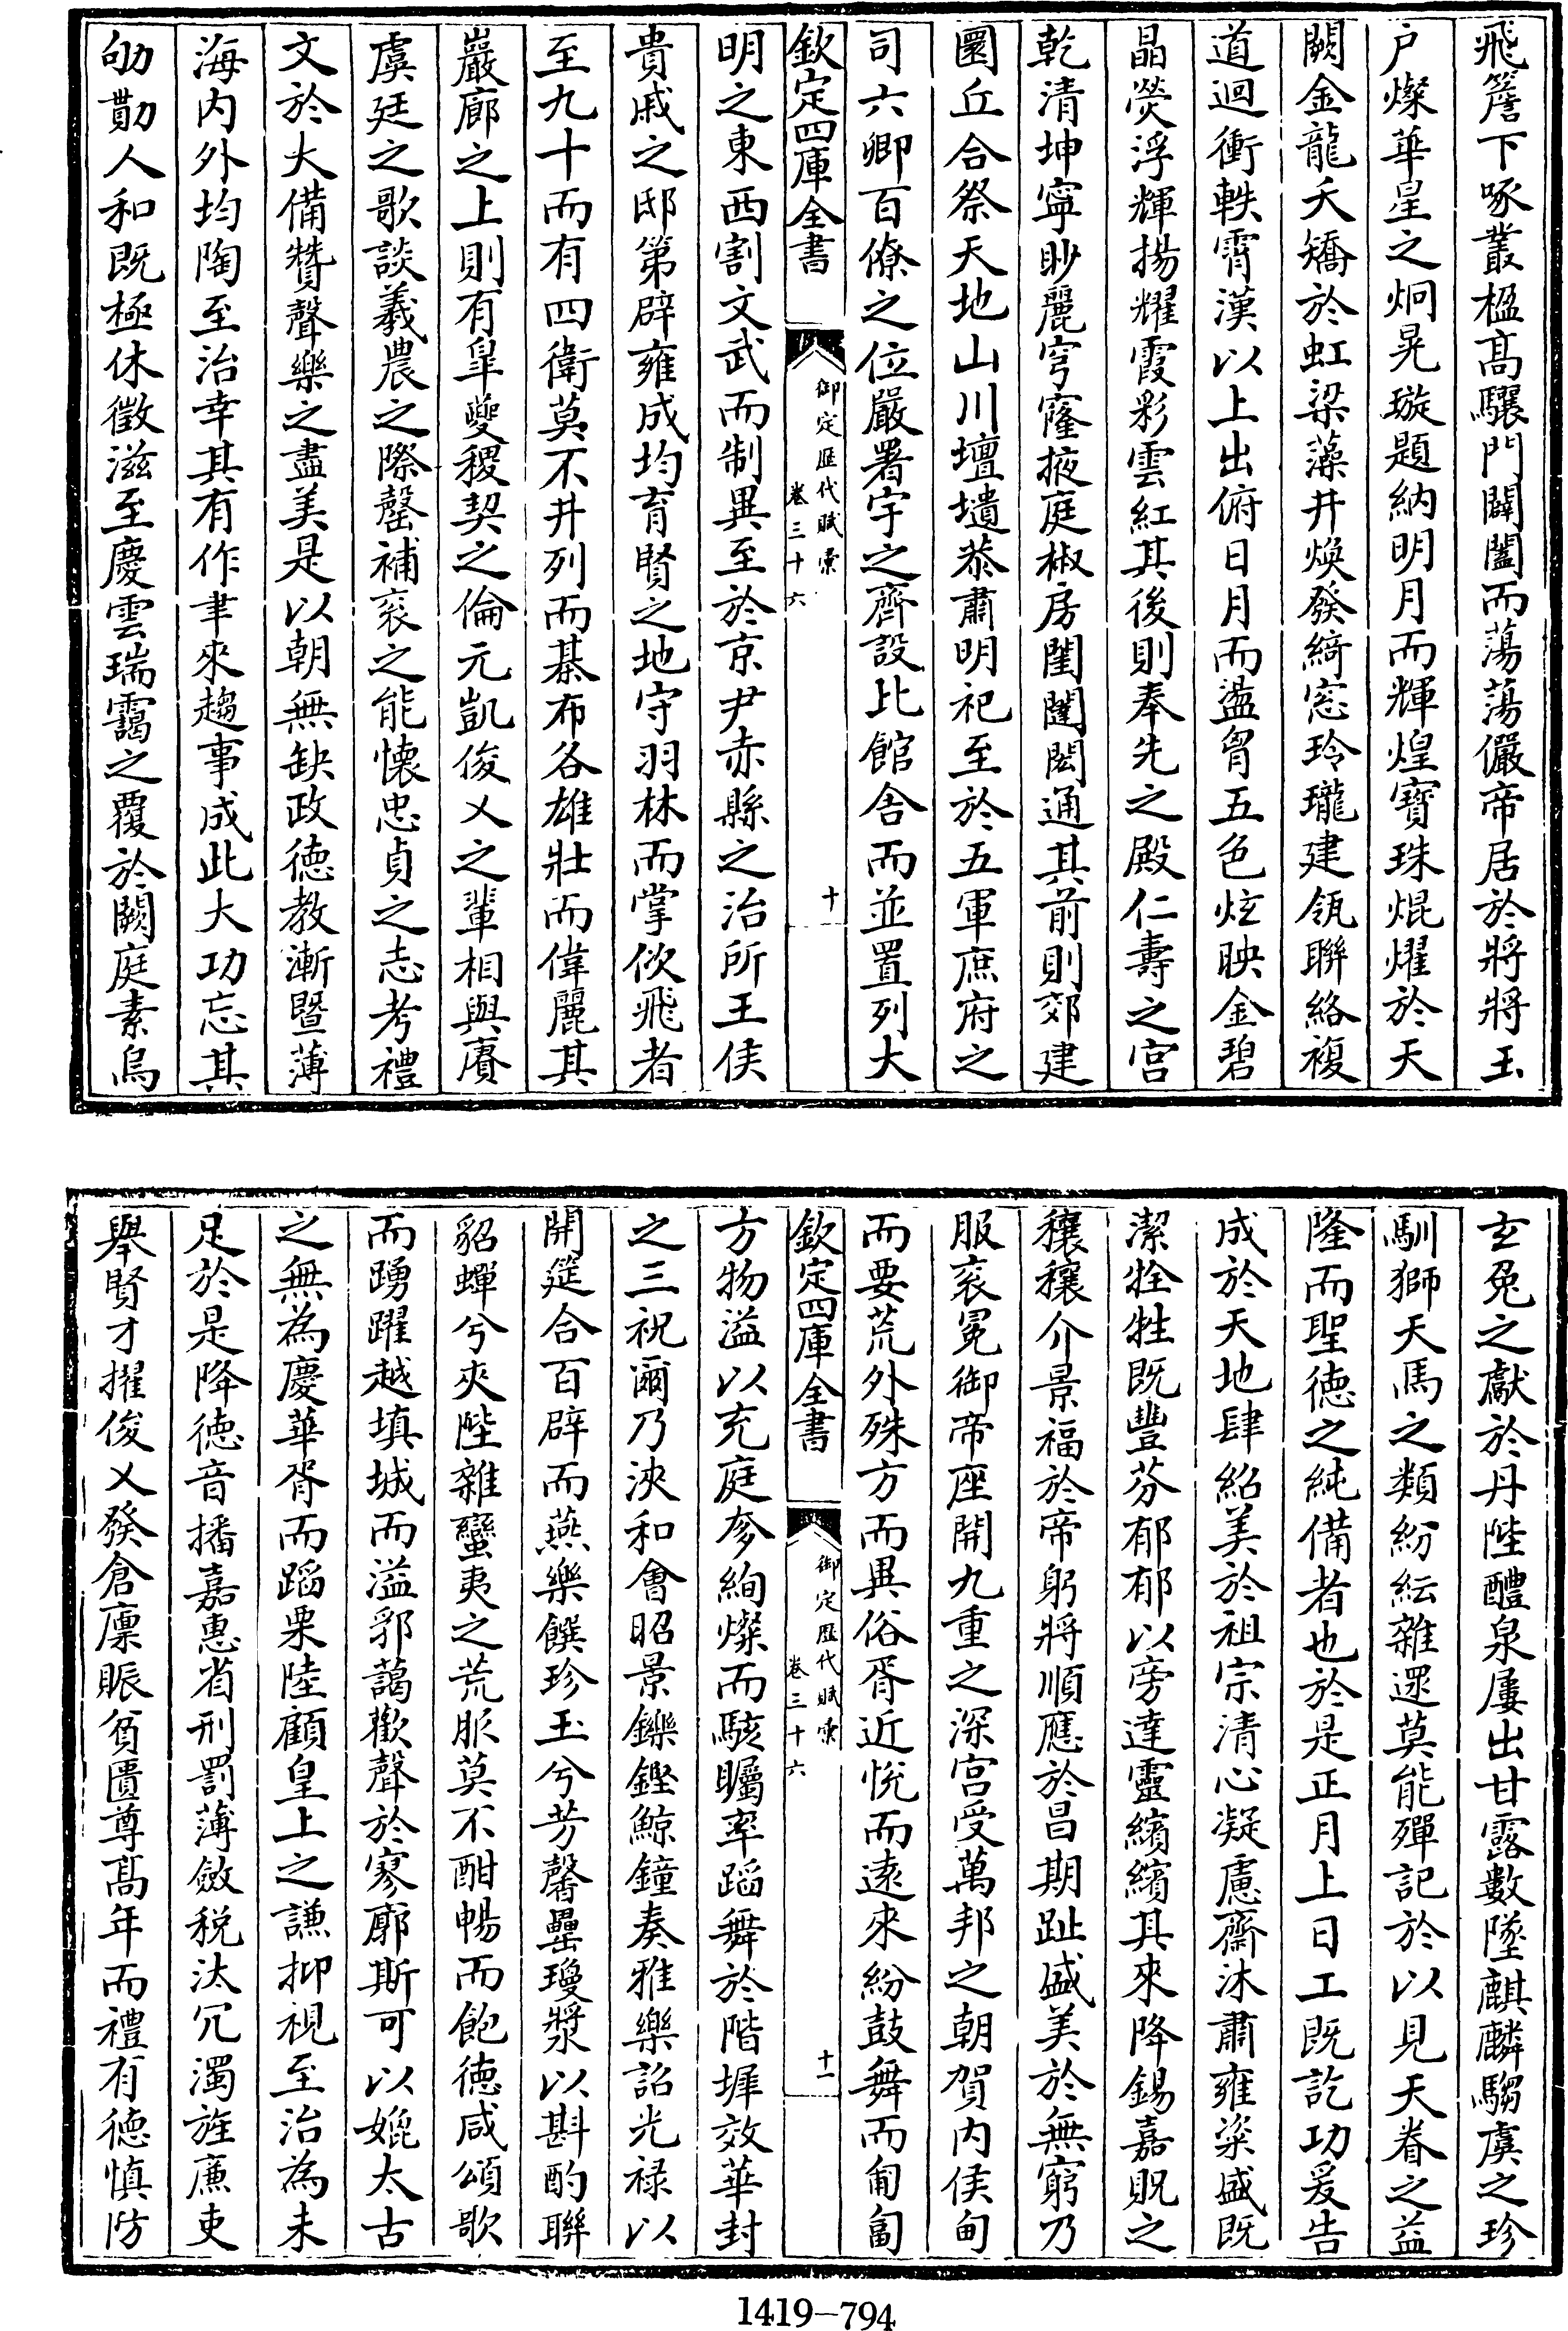 飛簷下啄叢楹髙驤門闢闔而蕩蕩儼帝居於將將玉
户燦華星之炯晃璇題納明月而輝煌寳珠焜燿於天
闕金龍夭矯於虹梁藻井煥發綺窓玲瓏建瓴聯絡複
道迴衝軼霄漢以上出俯日月而盪胷五色炫映金碧
晶熒浮輝揚耀霞彩雲紅其後則奉先之殿仁壽之宫
乾清坤寧眇麗穹窿掖庭椒房閨闥閎通其前則郊建
圜丘合祭天地山川壇壝恭肅明祀至於五軍庶府之
司六卿百僚之位嚴署宇之齊設比館舎而並置列大
欽定四庫全書
御定歷代賦彙
卷三十六
十
明之東西割文武而制異至於京尹赤縣之治所王侯
貴戚之邸第辟雍成均育賢之地守羽林而掌佽飛者
至九十而有四衛莫不井列而棊布各雄壯而偉麗其
嚴廊之上則有臯夔稷契之倫元凱俊乂之輩相與賡
虞廷之歌談羲農之際罄補衮之能懐忠貞之志考禮
文於大備贊聲樂之盡美是以朝無缺政徳教漸暨薄
海内外均陶至治幸其有作聿來趨事成此大功忘其
劬勩人和既極休徵滋至慶雲瑞靄之覆於闕庭素烏
玄兔之獻於丹陛醴泉屢出甘露數墜麒麟騶虞之珍
馴獅天馬之類紛紜雜遝莫能殫記於以見天眷之益
隆而聖徳之純備者也於是正月上日工既訖功爰告
成於天地肆紹美於祖宗清心凝慮齋沐肅雍粢盛既
潔牷牲既豐芬郁郁以旁達靈繽繽其來降錫嘉貺之
穰穰介景福於帝躬將順應於昌期趾盛美於無窮乃
服衮冕御帝座開九重之深宫受萬邦之朝賀内侯甸
而要荒外殊方而異俗胥近悦而逺來紛鼓舞而匍匐
欽定四庫全書
御定歷代賦彙
卷三十六
十一
方物溢以充庭奓絢燦而駭矚率蹈舞於階墀效華封
之三祝爾乃浹和㑹昭景鑠鏗鯨鐘奏雅樂詔光禄以
開筵合百辟而燕樂饌珍玉兮芳馨罍瓊漿以斟酌聯
貂蟬兮夾陛雜蠻夷之荒服莫不酣暢而飽徳咸頌歌
而踴躍越填城而溢郭藹歡聲於寥廓斯可以媲太古
之無為慶華胥而蹈栗陸顧皇上之謙抑視至治為未
足於是降徳音播嘉惠省刑罰薄斂税汰冗濁旌亷吏
舉賢才擢俊乂發倉廩賑貧匱尊髙年而禮有徳慎防
1419-794